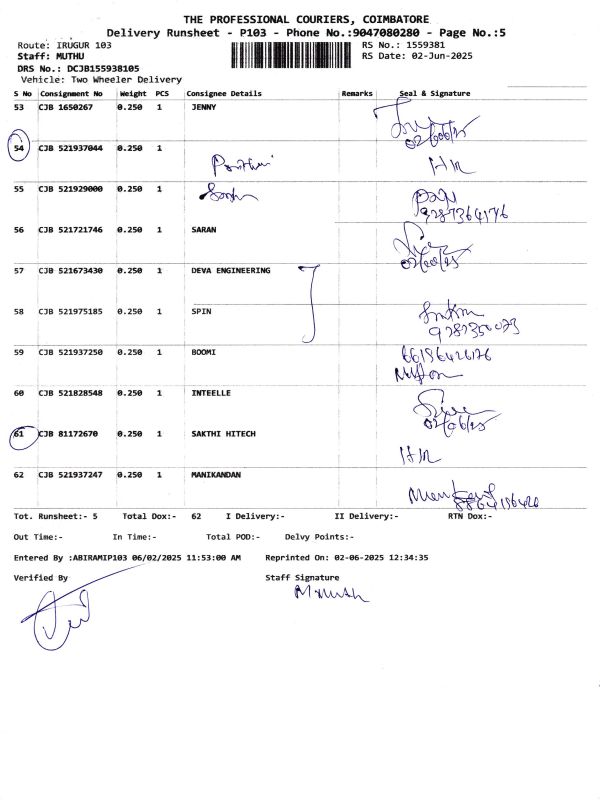 THE PROFESSIONAL COURIERS, COIMBATORE
Delivery Runsheet - P103 - Phone No.:9047080280 - Page No.:5
Route: IRUGUR 103 RS No.: 1559381
Staff: MUTHU RS Date: 02-Jun-2025
DRS No.: DCJB155938105
Vehicle: Two Wheeler Delivery
S No Consignment No Weight PCS Consignee Details Remarks Seal & Signature
53 CJB 1650267 0.250 1 JENNY
02/06/25
54 CJB 521937044 0.250 1
55 CJB 521929000 0.250 1
9287364176
56 CJB 521721746 0.250 1 SARAN
02/06/25
57 CJB 521673430 0.250 1 DEVA ENGINEERING
58 CJB 521975185 0.250 1 SPIN
59 CJB 521937250 0.250 1 BOOMI
60 CJB 521828548 0.250 1 INTEELLE
02/06/25
61 CJB 81172670 0.250 1 SAKTHI HITECH
62 CJB 521937247 0.250 1 MANIKANDAN
Tot. Runsheet:- 5 Total Dox:- 62 I Delivery:- II Delivery:- RTN Dox:-
Out Time:- In Time:- Total POD:- Delvy Points:-
Entered By :ABIRAMIP103 06/02/2025 11:53:00 AM Reprinted On: 02-06-2025 12:34:35
Verified By Staff Signature
M Muthu